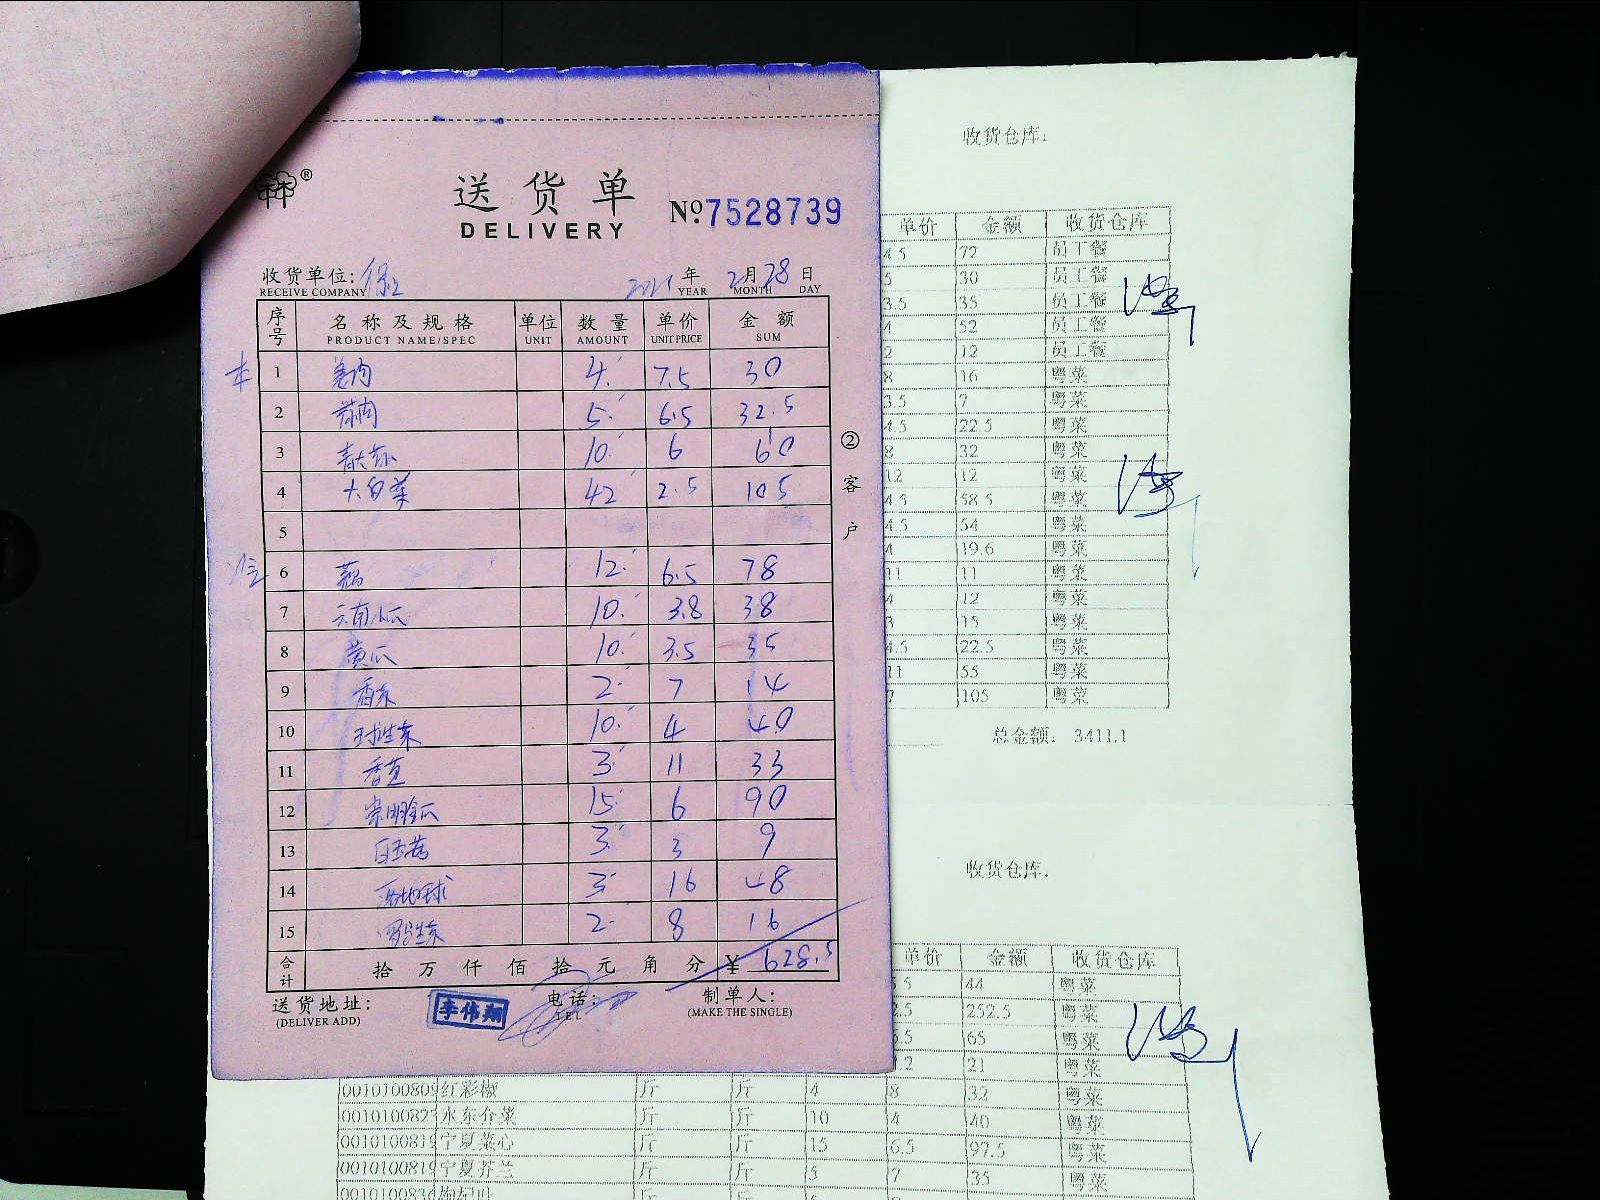 送货单
DELIVERY
№ 7528739
收货单位:
RECEIVE COMPANY
2021 年 2 月 28 日
YEAR MONTH DAY
序号 名称及规格 单位 数量 单价 金额
PRODUCT NAME/SPEC UNIT AMOUNT UNIT PRICE SUM
1 4 7.5 30
2 5 6.5 32.5
3 10 6 60
4 大白菜 42 2.5 105
5
6 12 6.5 78
7 10 3.8 38
8 黄瓜 10 3.5 35
9 香菜 2 7 14
10 球生菜 10 4 40
11 3 11 33
12 15 6 90
13 白玉菇 3 3 9
14 3 16 48
15 罗马生菜 2 8 16
合计 拾 万 仟 佰 拾 元 角 分 ¥ 628.5
送货地址:
(DELIVER ADD)
李伟翔
电话:
TEL
制单人:
(MAKE THE SINGLE)
②客户
收货仓库:
单价 金额 收货仓库
4.5 72 员工餐
5 30 员工餐
3.5 35 员工餐
4 52 员工餐
2 12 员工餐
8 16 粤菜
3.5 7 粤菜
4.5 22.5 粤菜
8 32 粤菜
12 12 粤菜
4.5 58.5 粤菜
4.5 54 粤菜
4 19.6 粤菜
11 11 粤菜
4 12 粤菜
3 15 粤菜
4.5 22.5 粤菜
11 55 粤菜
7 105 粤菜
总金额: 3411.1
收货仓库:
单价 金额 收货仓库
5.5 44 粤菜
2.5 252.5 粤菜
6.5 65 粤菜
4.2 21 粤菜
0010100809 红彩椒 斤 斤 4 8 32 粤菜
001010082 水东介菜 斤 斤 10 4 40 粤菜
0010100819 宁夏菜心 斤 斤 15 6.5 97.5 粤菜
0010100819 宁夏芥兰 斤 斤 5 7 35 粤菜